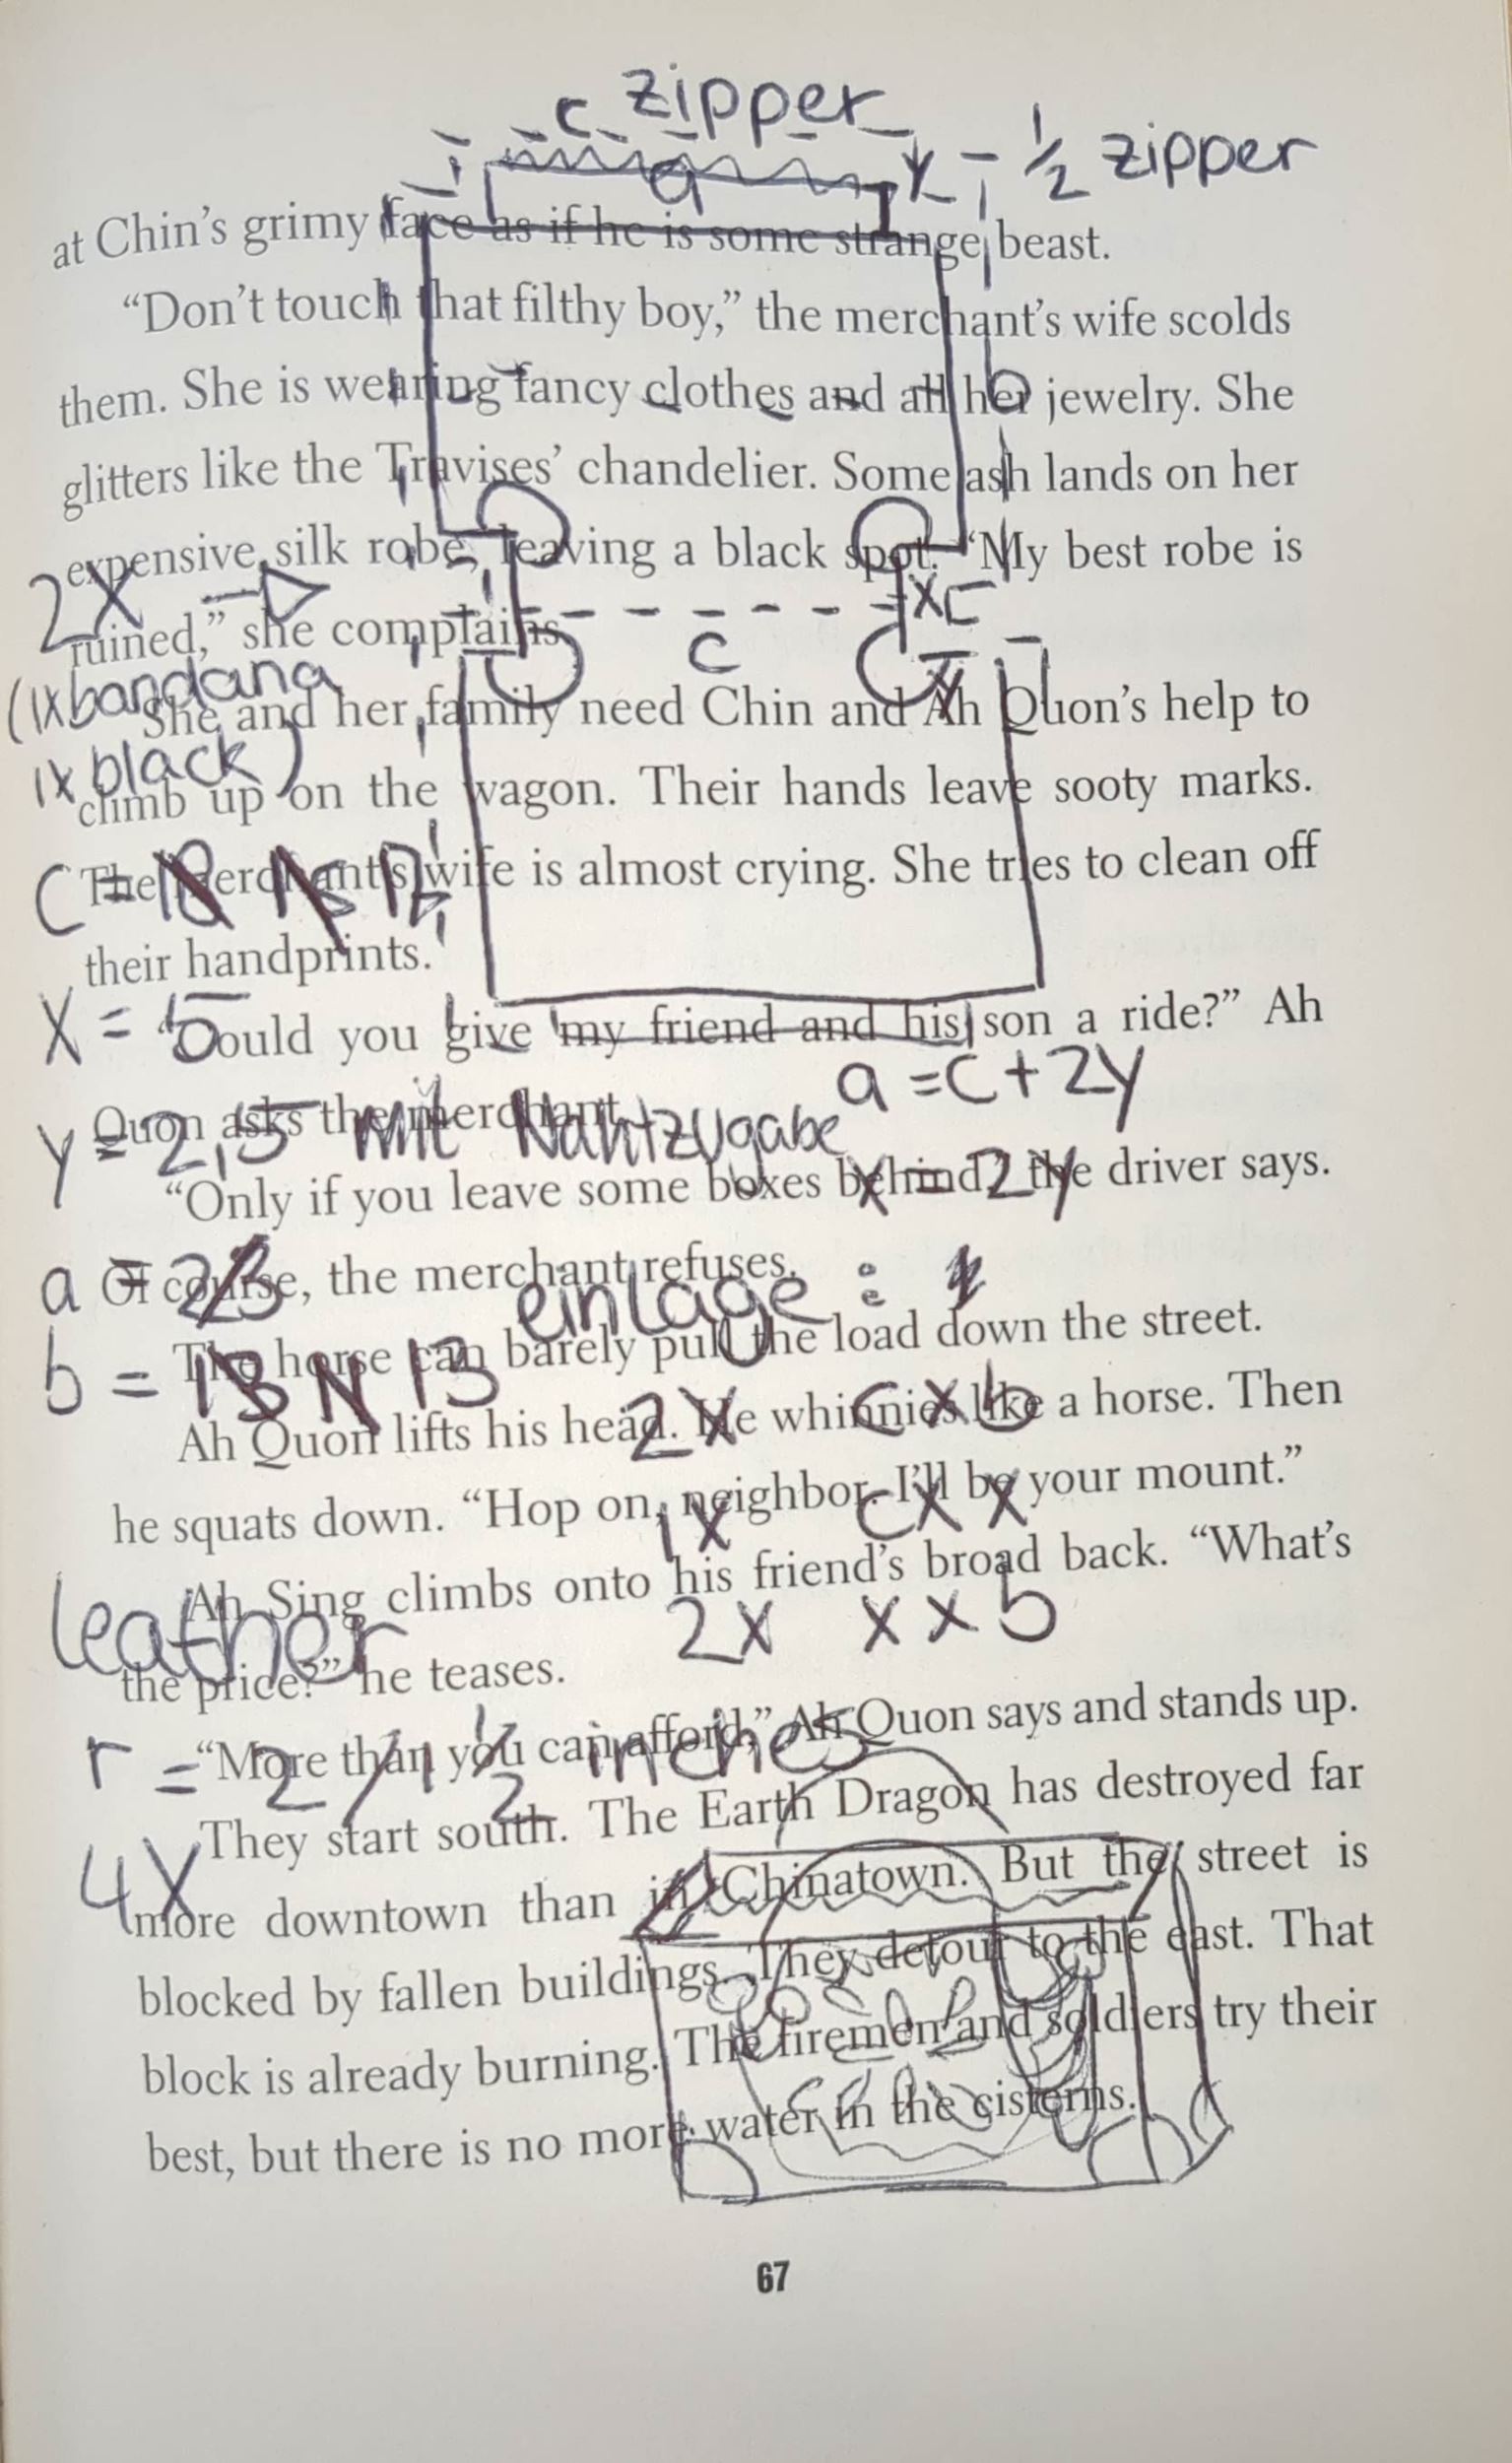 c zipper
a y - 1/2 zipper
at Chin's grimy face as if he is some strange beast.
“Don't touch that filthy boy,” the merchant's wife scolds
them. She is wearing fancy clothes and all her jewelry. She
b
glitters like the Travises' chandelier. Some ash lands on her
expensive silk robe, leaving a black spot. “My best robe is
2x
x
ruined,” she complains.
c
(1x bandana
y
She and her family need Chin and Ah Quon's help to
1x black)
climb up on the wagon. Their hands leave sooty marks.
The merchant's wife is almost crying. She tries to clean off
c =
their handprints.
x = 5
“Could you give my friend and his son a ride?” Ah
a = c + 2y
Quon asks the merchant.
y = 2,5 mit Nahtzugabe
x = 2y
“Only if you leave some boxes behind,” the driver says.
a =
Of course, the merchant refuses.
einlage :
The horse can barely pull the load down the street.
b = 13
2x c x b
Ah Quon lifts his head. He whinnies like a horse. Then
he squats down. “Hop on, neighbor. I'll be your mount.”
1x c x x
Ah Sing climbs onto his friend's broad back. “What's
leather
2x x x b
the price?” he teases.
“More than you can afford,” Ah Quon says and stands up.
r = 2 / 1 1/2 inches
They start south. The Earth Dragon has destroyed far
4x
more downtown than in Chinatown. But the street is
blocked by fallen buildings. They detour to the east. That
block is already burning. The firemen and soldiers try their
best, but there is no more water in the cisterns.
67